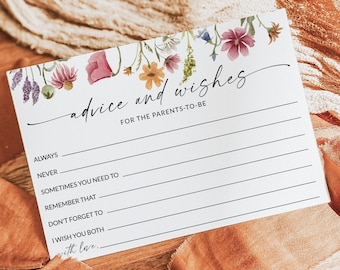 advice and wishes
FOR THE PARENTS-TO-BE
ALWAYS
NEVER
SOMETIMES YOU NEED TO
REMEMBER THAT
DON'T FORGET TO
I WISH YOU BOTH
with love,